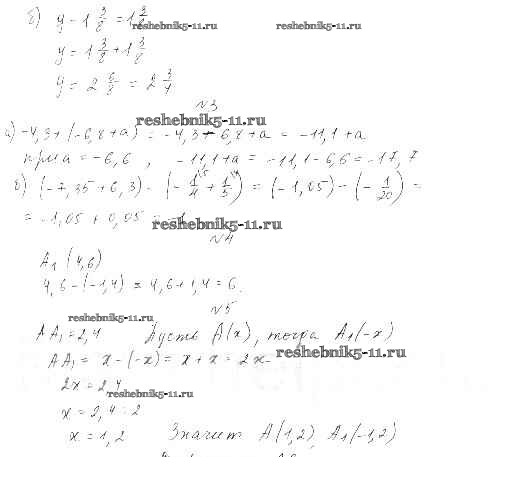 б) y - 1 3/8 = 1 3/8
reshebnik5-11.ru reshebnik5-11.ru
y = 1 3/8 + 1 3/8
y = 2 6/8 = 2 3/4
№3
reshebnik5-11.ru
а) -4,3 + (-6,8 + a) = -4,3 - 6,8 + a = -11,1 + a
при a = -6,6, -11,1 + a = -11,1 - 6,6 = -17,7
б) (-7,35 + 6,3) - (-1/4 + 1/5) = (-1,05) - (-1/20) =
= -1,05 + 0,05 = -1
reshebnik5-11.ru
№4
A₁ (4,6)
4,6 - (-1,4) = 4,6 + 1,4 = 6.
№5
reshebnik5-11.ru
AA₁ = 2,4 Пусть A(x), тогда A₁(-x)
AA₁ = x - (-x) = x + x = 2x
reshebnik5-11.ru
2x = 2,4
reshebnik5-11.ru
x = 2,4 : 2
x = 1,2 Значит A(1,2), A₁(-1,2)